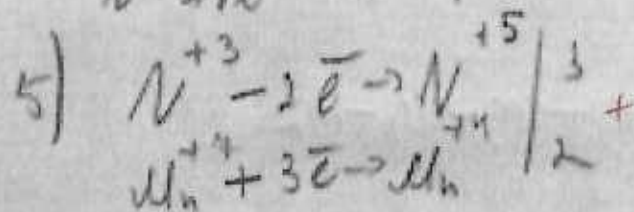 5) N⁺³ - 2ē → N⁺⁵ | 3 +
Mn⁺⁷ + 3ē → Mn⁺⁴ | 2